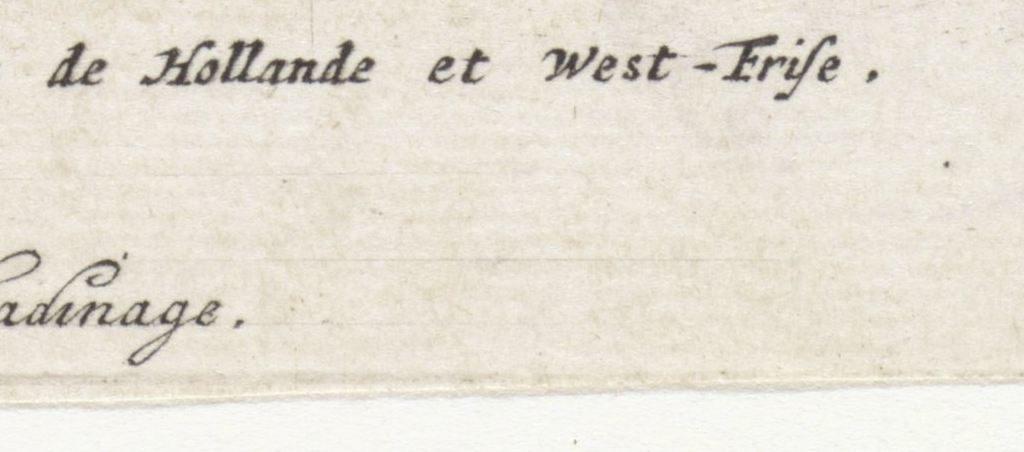 de Hollande et West-Friſe.
adinage.